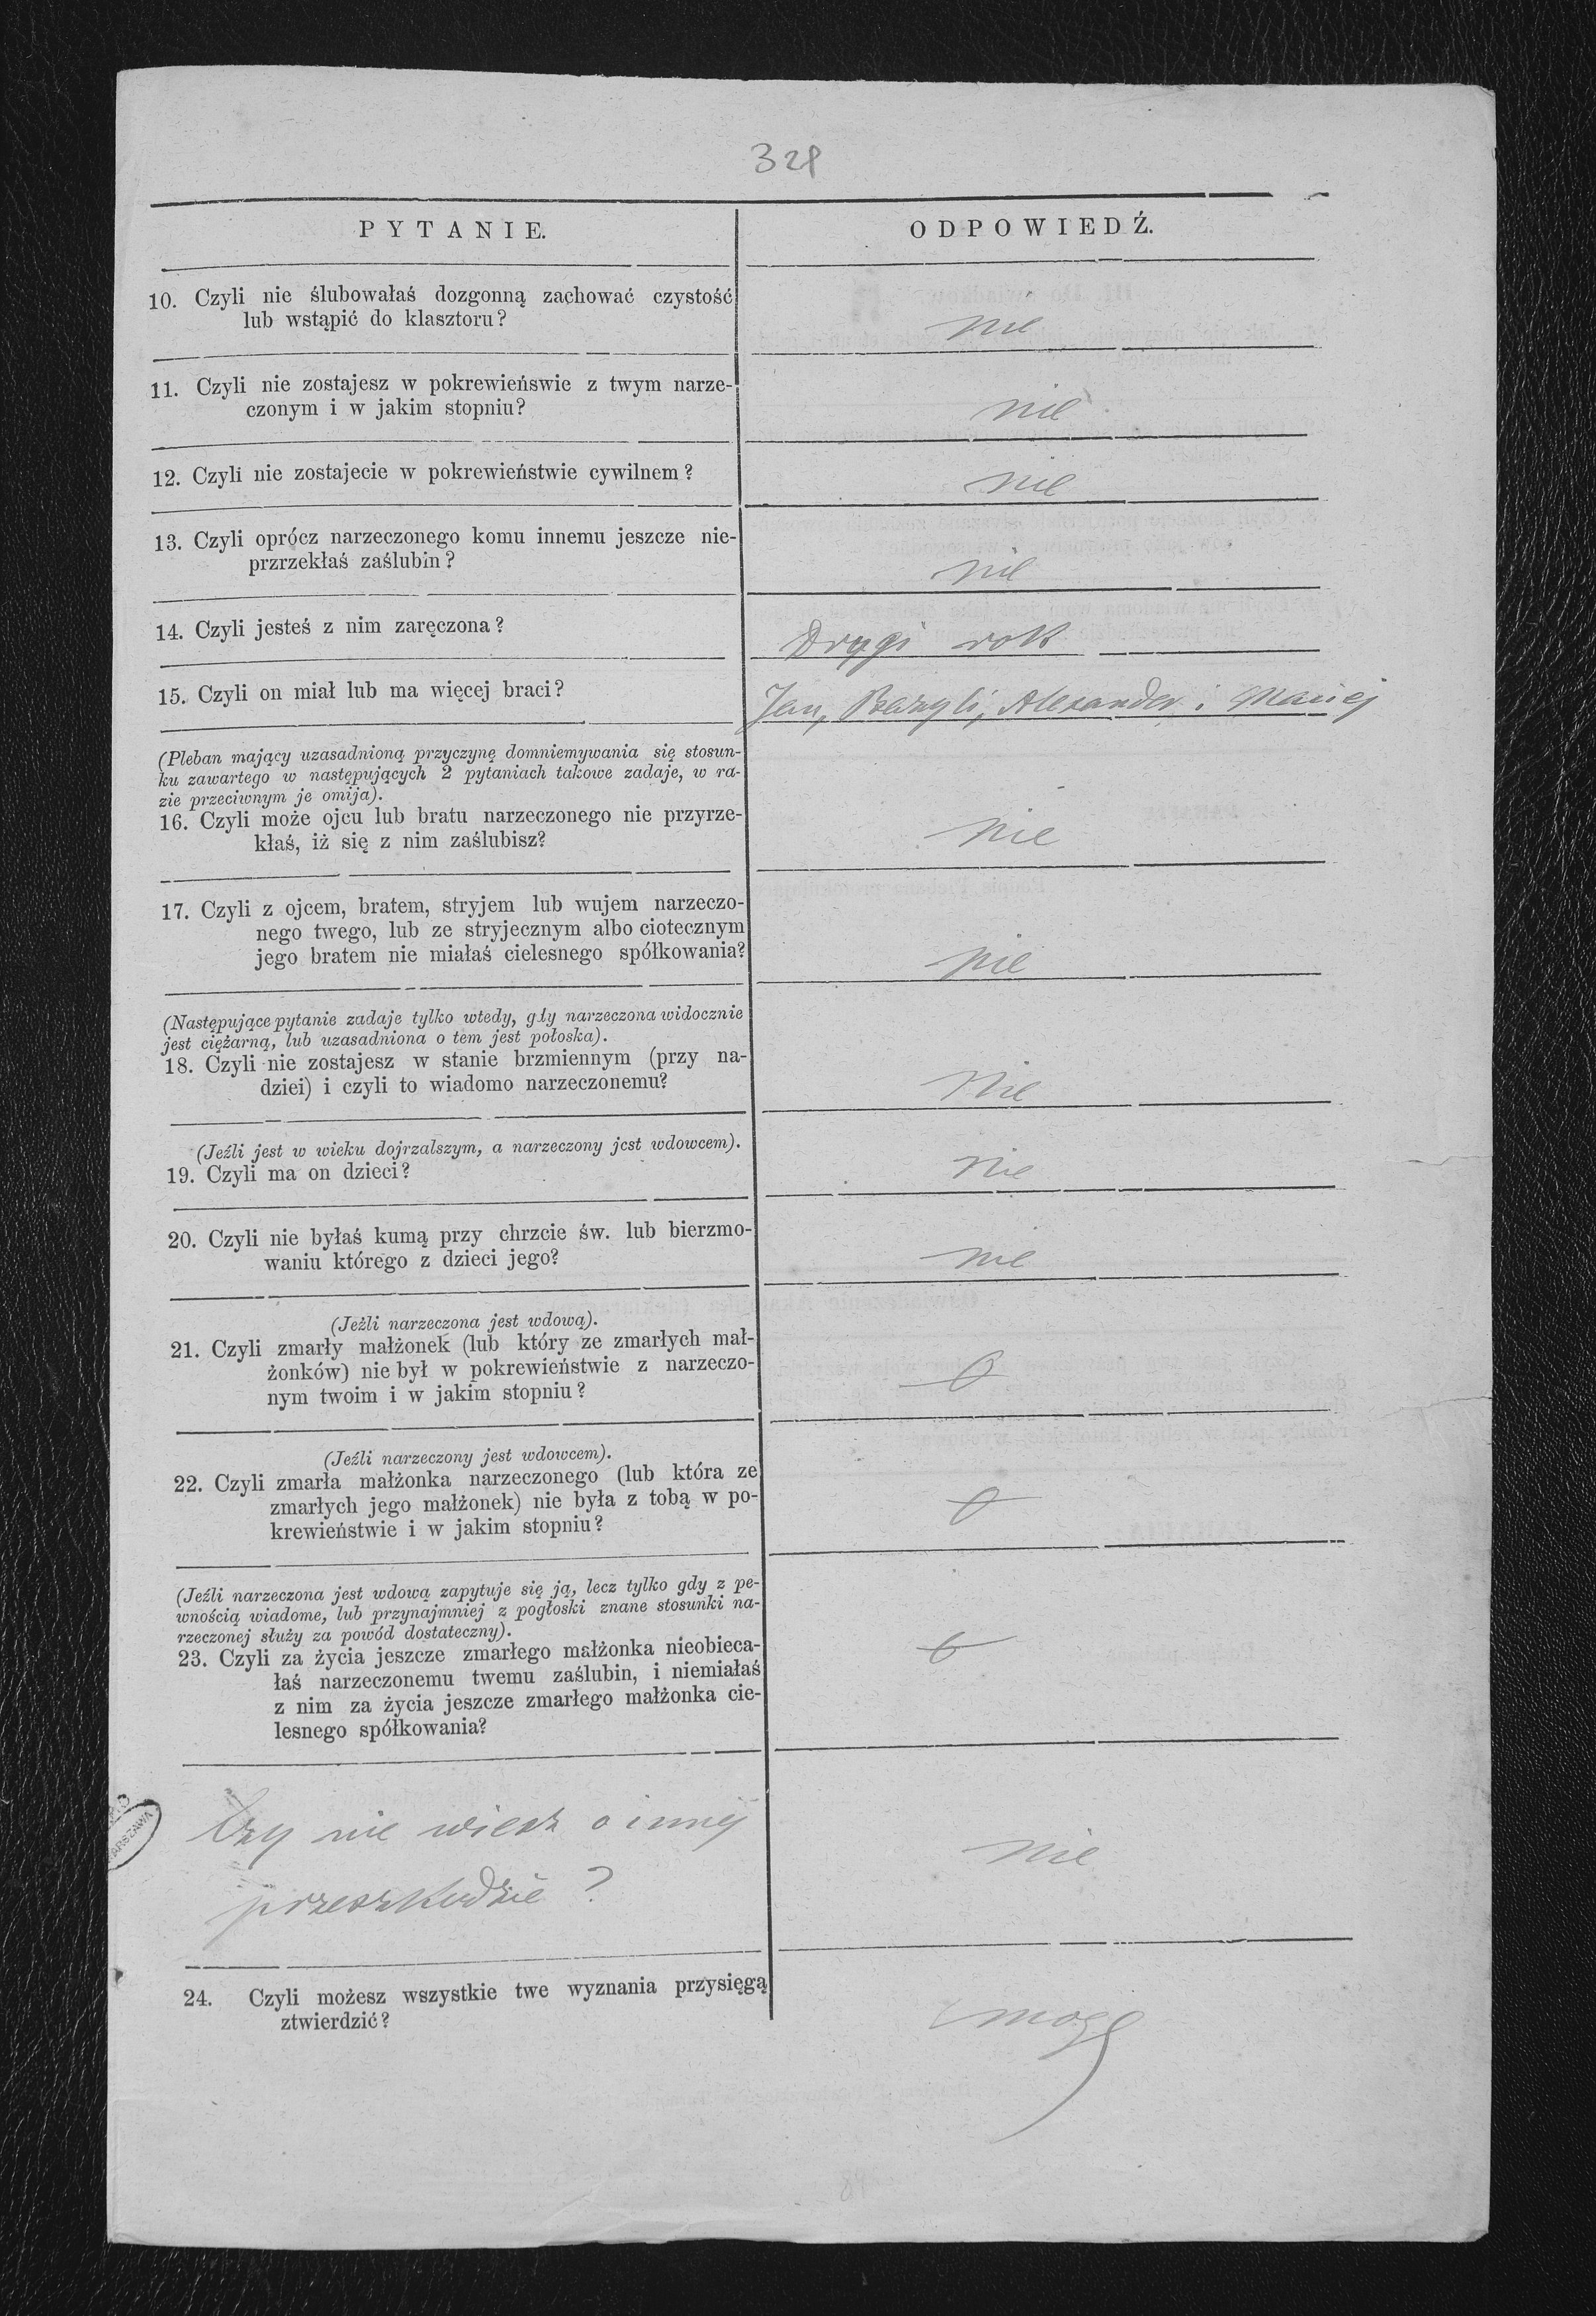 321
PYTANIE.
ODPOWIEDŹ.
10. Czyli nie ślubowałaś dozgonną zachować czystość
lub wstąpić do klasztoru?
nie
11. Czyli nie zostajesz w pokrewieńswie z twym narze-
czonym i w jakim stopniu?
nie
12. Czyli nie zostajecie w pokrewieństwie cywilnem?
nie
13. Czyli oprócz narzeczonego komu innemu jeszcze nie-
przrzekłaś zaślubin?
nie
14. Czyli jesteś z nim zaręczona?
Drugi rok
15. Czyli on miał lub ma więcej braci?
Jan, Bazyli, Alexander i Maciej
(Pleban mający uzasadnioną przyczynę domniemywania się stosun-
ku zawartego w następujących 2 pytaniach takowe zadaje, w ra-
zie przeciwnym je omija).
16. Czyli może ojcu lub bratu narzeczonego nie przyrze-
kłaś, iż się z nim zaślubisz?
nie
17. Czyli z ojcem, bratem, stryjem lub wujem narzeczo-
nego twego, lub ze stryjecznym albo ciotecznym
jego bratem nie miałaś cielesnego spółkowania?
nie
(Następujące pytanie zadaje tylko wtedy, gdy narzeczona widocznie
jest ciężarną, lub uzasadniona o tem jest połoska).
18. Czyli nie zostajesz w stanie brzmiennym (przy na-
dziei) i czyli to wiadomo narzeczonemu?
nie
(Jeźli jest w wieku dojrzalszym, a narzeczony jest wdowcem).
19. Czyli ma on dzieci?
nie
20. Czyli nie byłaś kumą przy chrzcie św. lub bierzmo-
waniu którego z dzieci jego?
nie
(Jeźli narzeczona jest wdową).
21. Czyli zmarły małżonek (lub który ze zmarłych mał-
żonków) nie był w pokrewieństwie z narzeczo-
nym twoim i w jakim stopniu?
0
(Jeźli narzeczony jest wdowcem).
22. Czyli zmarła małżonka narzeczonego (lub która ze
zmarłych jego małżonek) nie była z tobą w po-
krewieństwie i w jakim stopniu?
0
(Jeźli narzeczona jest wdową zapytuje się ją, lecz tylko gdy z pe-
wnością wiadome, lub przynajmniej z pogłoski znane stosunki na-
rzeczonej służy za powód dostateczny).
23. Czyli za życia jeszcze zmarłego małżonka nieobieca-
łaś narzeczonemu twemu zaślubin, i niemiałaś
z nim za życia jeszcze zmarłego małżonka cie-
lesnego spółkowania?
0
Czy nie wiesz o innej
przeszkodzie?
nie
24. Czyli możesz wszystkie twe wyznania przysięgą
ztwierdzić?
mogę